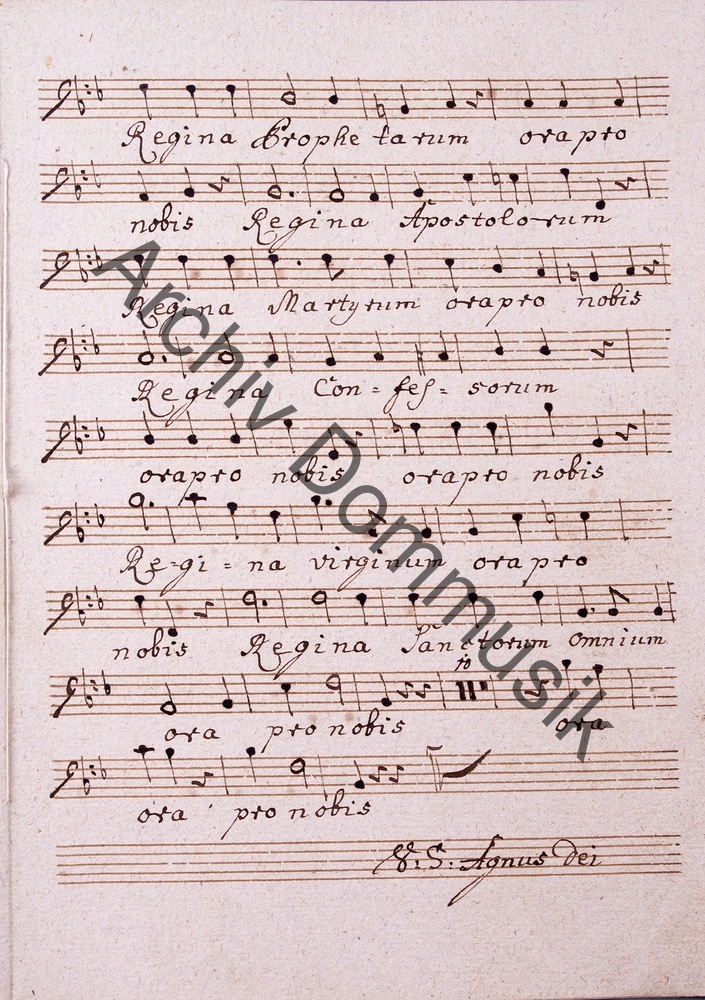 Regina Prophe tarum ora pro
nobis Regina Apostolo-rum
Regina Martyrum ora pro nobis
Regina Con = fes = sorum
ora pro nobis ora pro nobis
Re-gi = na virginum ora pro
nobis Regina Sanctorum omnium
10
ora pro nobis ora
ora pro nobis
V. S: Agnus Dei
Archiv Dommusik